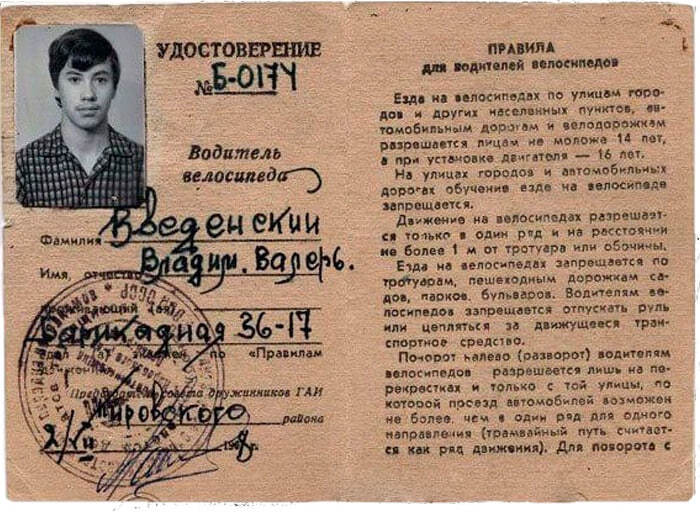 УДОСТОВЕРЕНИЕ
№ Б-0174
Водитель
велосипеда
Фамилия Введенский
Имя, отчество Владим. Валерь.
Барикадная 36-17
по «Правилам
Председатель совета дружинников ГАИ
Кировского района
г.
ПРАВИЛА
для водителей велосипедов
Езда на велосипедах по улицам горо-
дов и других населенных пунктов, ав-
томобильным дорогам и велодорожкам
разрешается лицам не моложе 14 лет,
а при установке двигателя — 16 лет.
На улицах городов и автомобильных
дорогах обучение езде на велосипеде
запрещается.
Движение на велосипедах разрешает-
ся только в один ряд и на расстоянии
не более 1 м от тротуара или обочины.
Езда на велосипедах запрещается по
тротуарам, пешеходным дорожкам са-
дов, парков, бульваров. Водителям ве-
лосипедов запрещается отпускать руль
или цепляться за движущееся транс-
портное средство.
Поворот налево (разворот) водителям
велосипедов разрешается лишь на пе-
рекрестках и только с той улицы, по
которой проезд автомобилей возможен
не более, чем в один ряд для одного
направления (трамвайный путь считает-
ся как ряд движения). Для поворота с